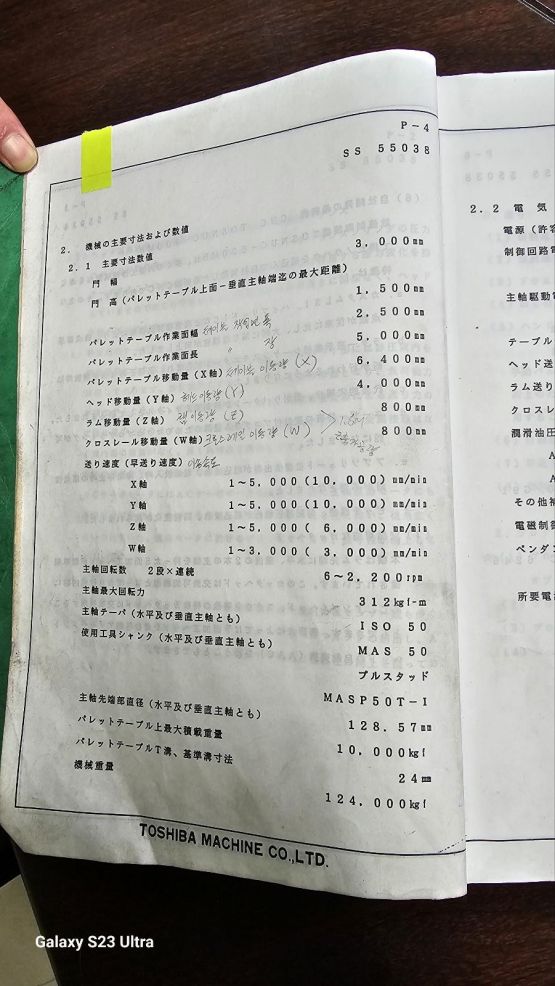 P－4
SS 55038
2. 機械の主要寸法および数値
2.1 主要寸法数値
門 幅 3,000mm
門 高(パレットテーブル上面－垂直主軸端迄の最大距離)
1,500mm
パレットテーブル作業面幅 테이블 작업면 폭 2,500mm
パレットテーブル作業面長 〃 장 5,000mm
パレットテーブル移動量(X軸) 테이블 이동량 (X) 6,400mm
ヘッド移動量(Y軸) 헤드이동량(Y) 4,000mm
ラム移動量(Z軸) 램 이동량 (Z) 800mm
クロスレール移動量(W軸) 크로스레일 이동량 (W) 800mm
送り速度(早送り速度) 이송속도
X軸 1～5,000(10,000)mm/min
Y軸 1～5,000(10,000)mm/min
Z軸 1～5,000( 6,000)mm/min
W軸 1～3,000( 3,000)mm/min
主軸回転数 2段×連続 6～2,200rpm
主軸最大回転力 312kgf-m
主軸テーパ(水平及び垂直主軸とも) ISO 50
使用工具シャンク(水平及び垂直主軸とも) MAS 50
プルスタッド
MASP50T－I
主軸先端部直径(水平及び垂直主軸とも) 128.57mm
パレットテーブル上最大積載重量 10,000kgf
パレットテーブルT溝、基準溝寸法 24mm
機械重量 124,000kgf
TOSHIBA MACHINE CO.,LTD.
2.2 電 気
電源(許容
制御回路電
主軸駆動電
テーブル
ヘッド送
ラム送り
クロスレ
潤滑油圧
A
A
その他補
電磁制御
ペンダン
所要電
Galaxy S23 Ultra